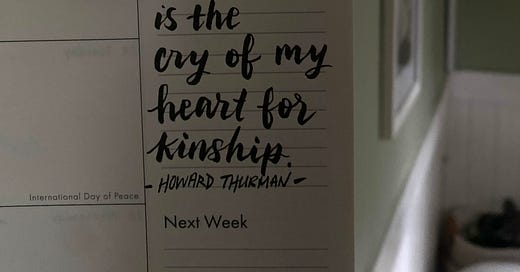 is the
cry of my
heart for
kinship.
- HOWARD THURMAN -
International Day of Peace
Next Week